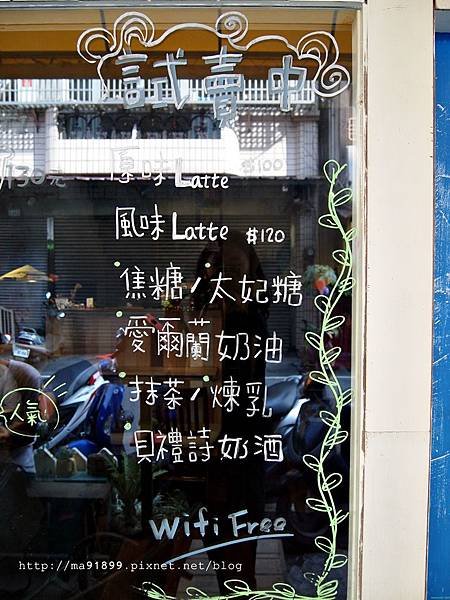 試賣中
130元
原味Latte $100
風味Latte $120
焦糖/太妃糖
愛爾蘭奶油
抹茶/煉乳
貝禮詩奶酒
人氣
Wifi Free
http://ma91899.pixnet.net/blog